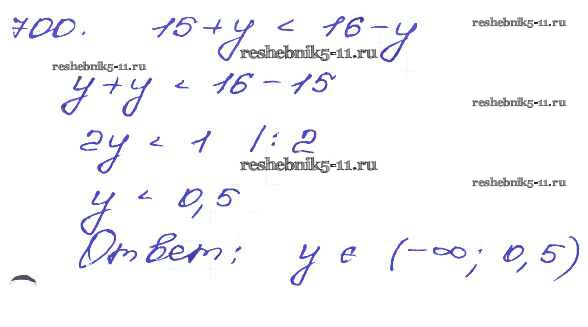 700. 15 + y < 16 - y
reshebnik5-11.ru
reshebnik5-11.ru
reshebnik5-11.ru
y + y < 16 - 15
reshebnik5-11.ru
2y < 1 /: 2
reshebnik5-11.ru
reshebnik5-11.ru
y < 0,5
Ответ: y ∈ (-∞; 0,5)